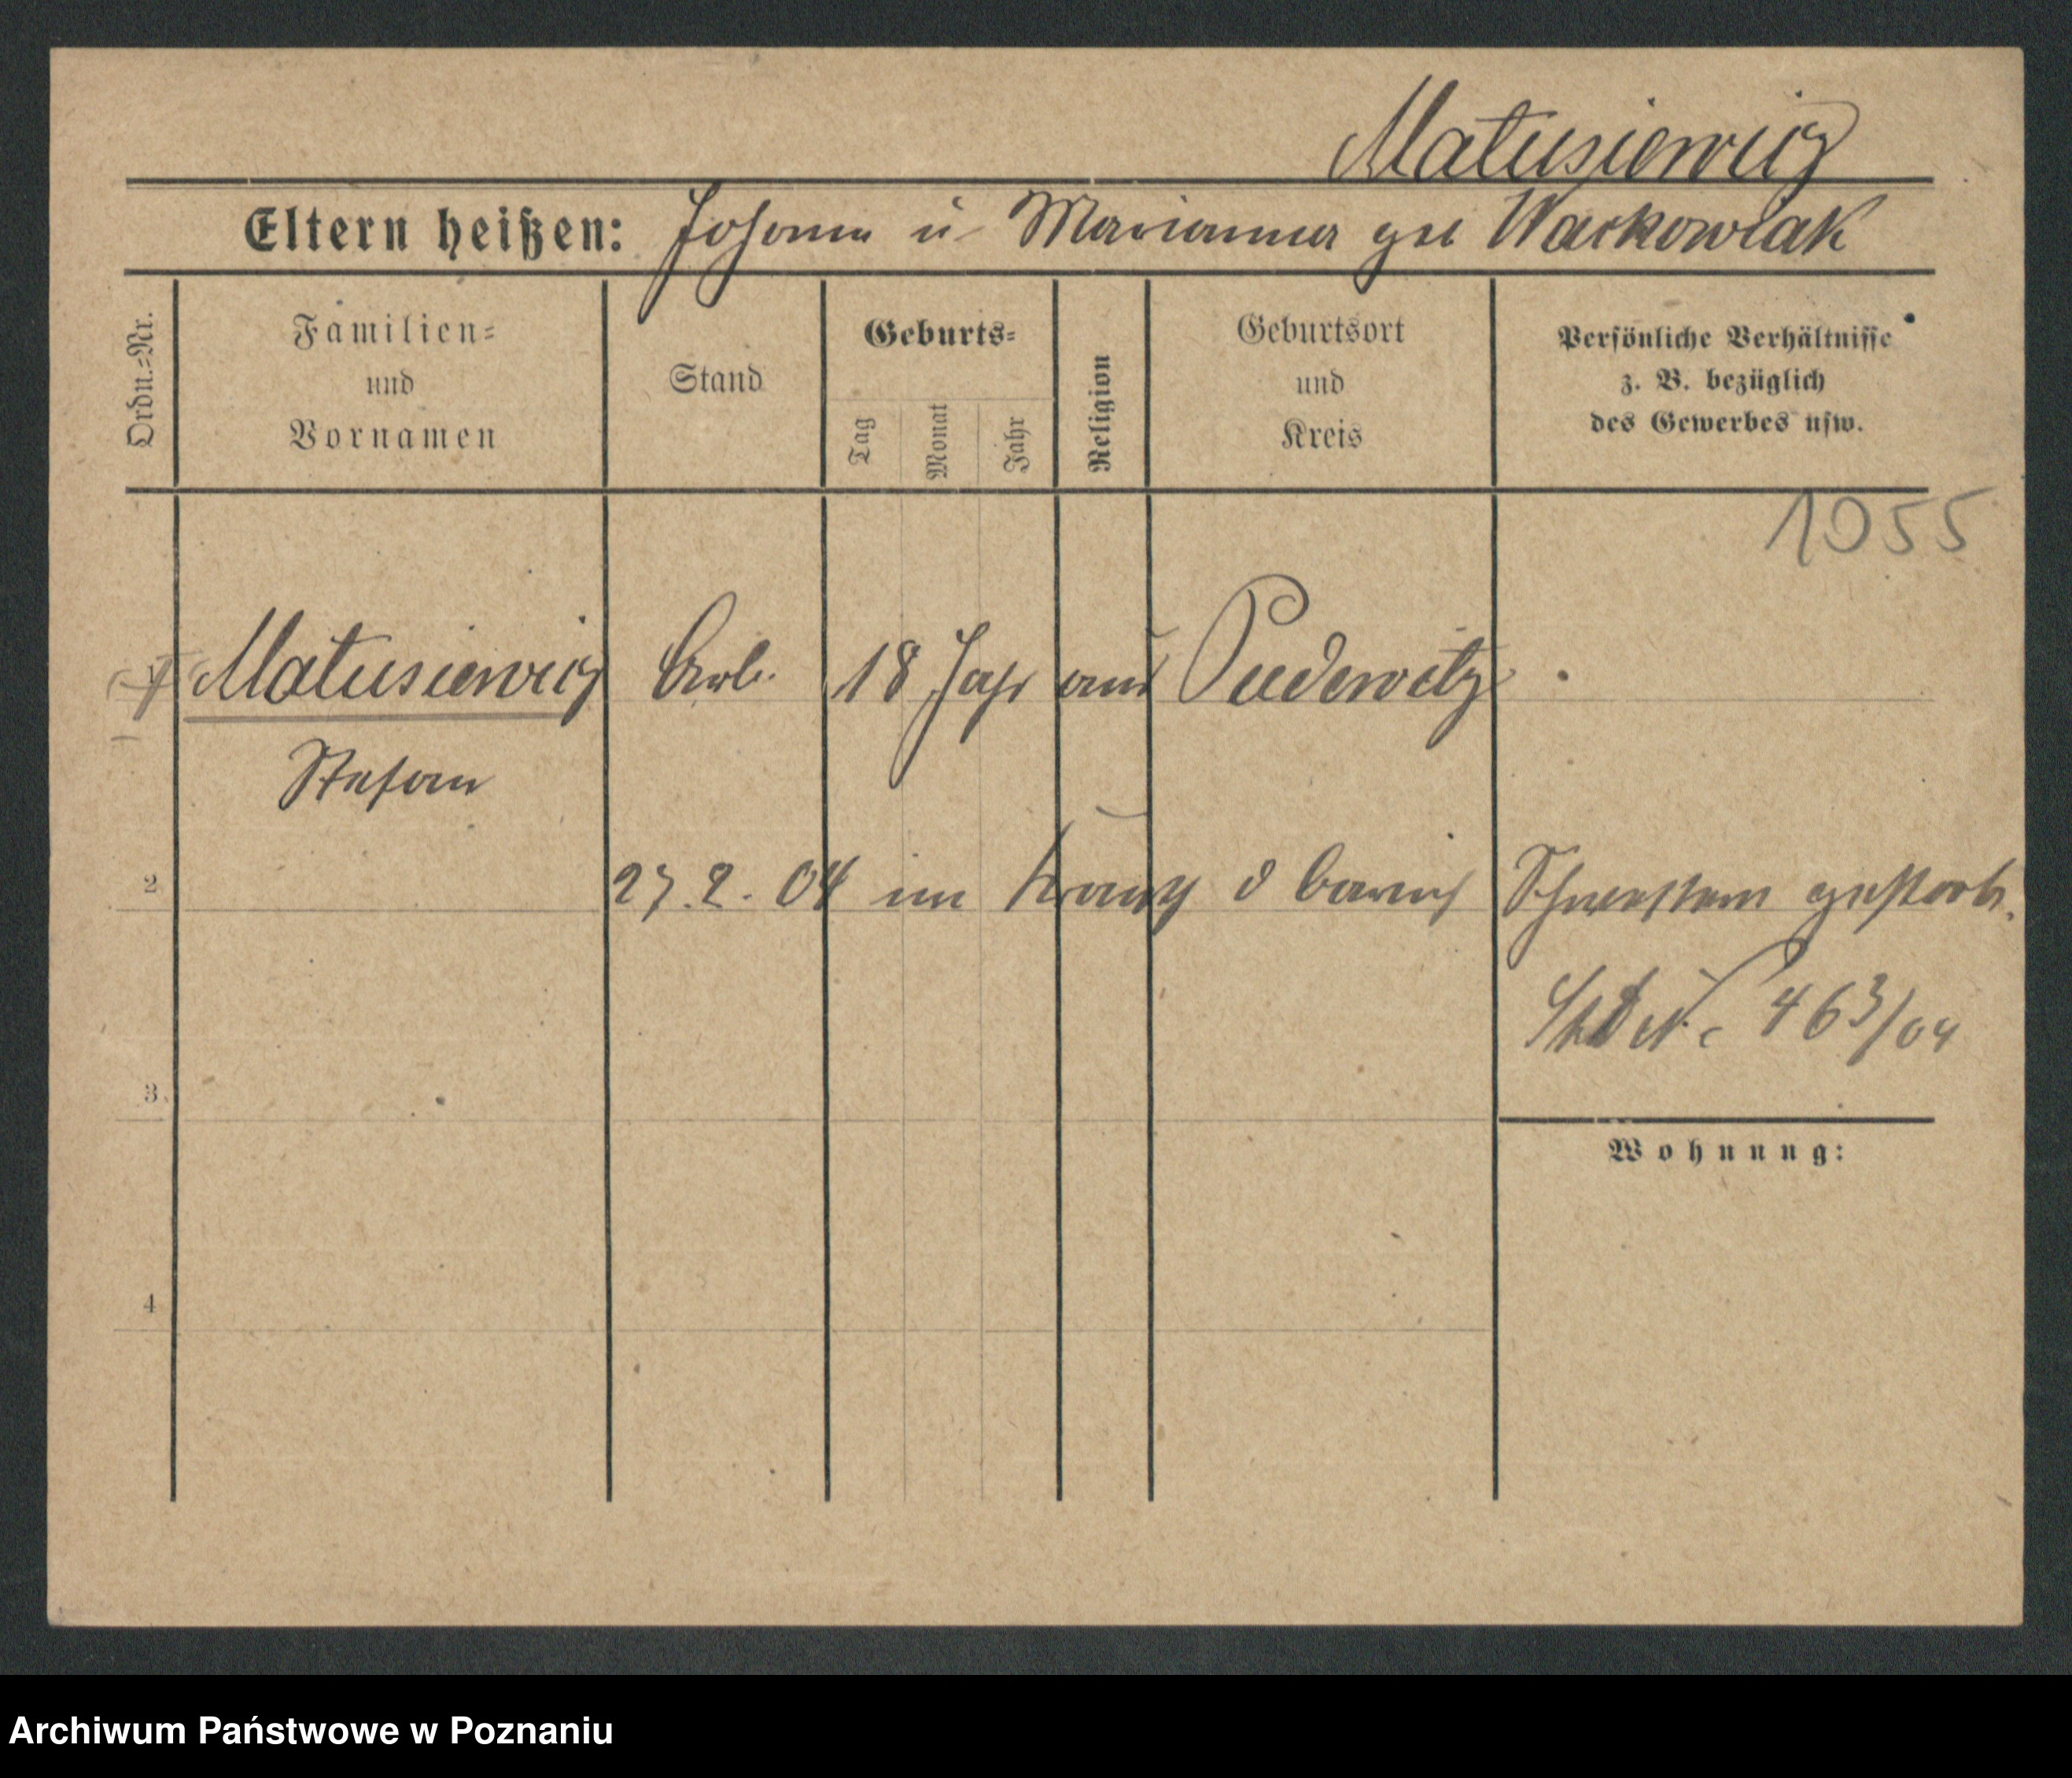 Matusiewicz
Eltern heißen: Johann u Marianna geb Wackowiak
Ordn.-Nr.
Familien-
und
Vornamen
Stand
Geburts-
Tag
Monat
Jahr
Religion
Geburtsort
und
Kreis
Persönliche Verhältnisse
z. B. bezüglich
des Gewerbes usw.
1055
Matusiewicz Arb. 18 Jahr aus Pudewitz
Stefan
2
27.2.04 im Krankh d barmh Schwestern gestorb.
463/04
3
Wohnung:
4
Archiwum Państwowe w Poznaniu